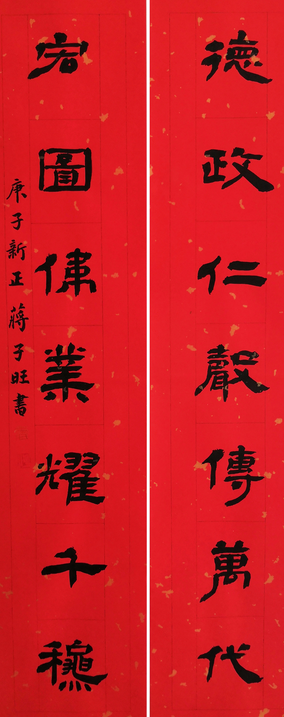 德政仁聲傳萬代
宏圖偉業耀千穐
庚子新正蔣子旺書